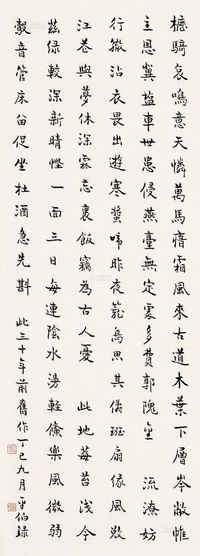 櫪騎哀鳴意天憐萬馬瘖霜風來古道木葉下層岑敝帷
主恩冀鹽車世患侵燕臺無定處多費郭隗金 流潦妨
行徹沾衣畏出遊寒螿啼昨夜籠鳥思其儔班扇緣風歇
江與夢休深霖忘裹飯竊為古人憂 此地莓苔淺今
茲綠較深新晴慳一面三日每連陰水輕儵樂風微弱
鷇音管床留促坐杜酒急先斟 此三十年前舊作丁巳九月平伯錄